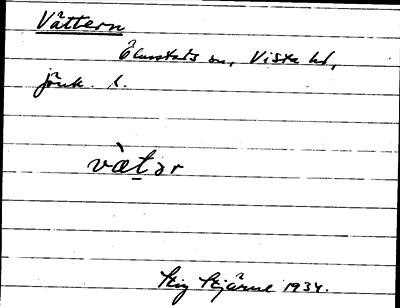 Vättern
Ölmstads sn, Vista hd,
Jönk. l.
vä̀t̠ər
Stig Stjärne 1934.